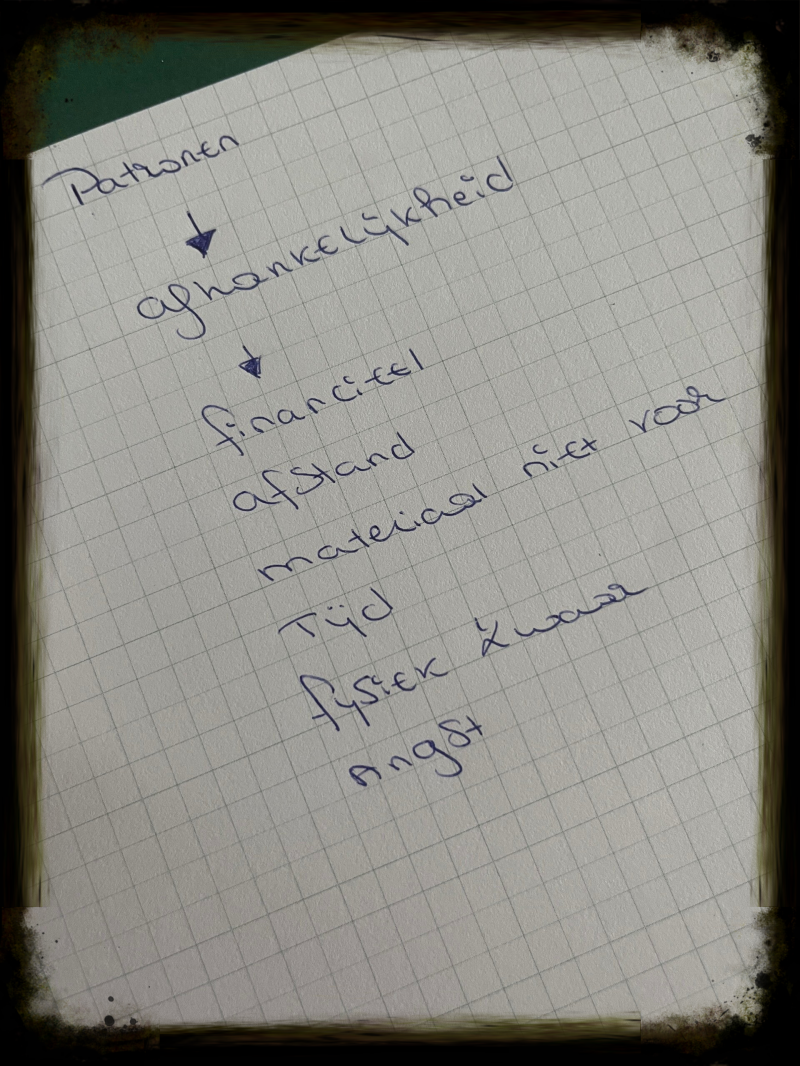 Patronen
↓
afhankelijkheid
↓
financieel
afstand
materiaal niet voor
Tijd
fysiek zwaar
Angst